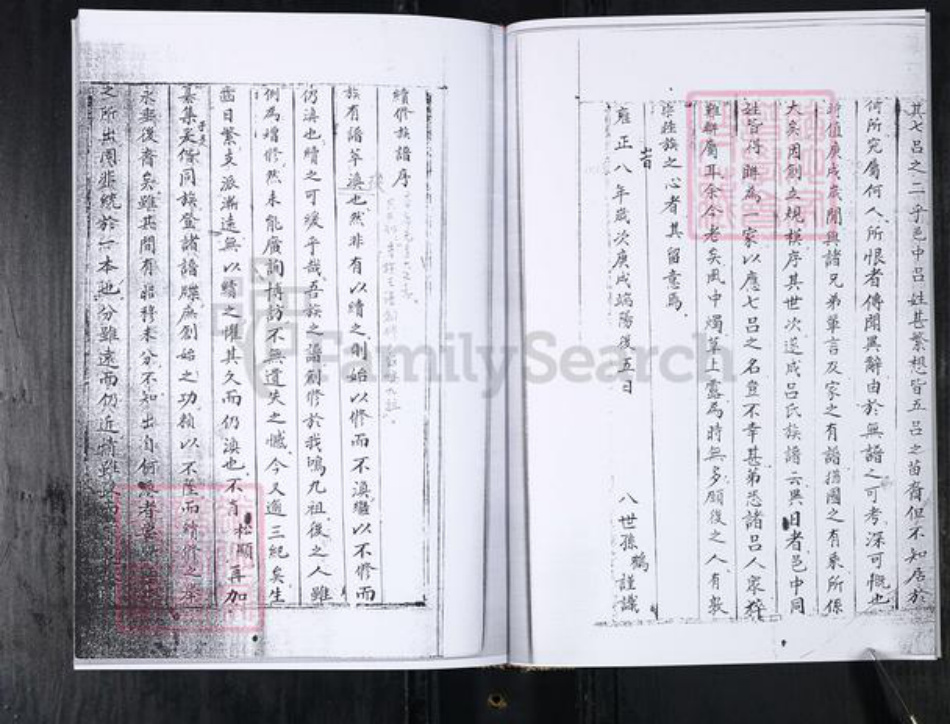 其七吕之二乎邑中吕姓甚繁想皆五吕之苗裔但不知居於
何所究屬何人所恨者傳聞異辭由於無譜之可考深可慨也
時值庚戌歲閒與諸兄弟輩言及家之有譜猶國之有乘所係
大矣因創立規模序其世次遂成吕氏族譜云異日者邑中同
姓皆得聯為一家以應七吕之名豈不幸甚第恐諸吕人家
難辭屬耳余今老矣風中燭草上露為時無多願後之人有敦
崇族之心者其留意焉
旹
雍正八年歲次庚戌端陽後五日 八世孫鶴謹識
續修族譜序
族有譜萃渙也然非有以續之創始以修而不渙繼以不修而
仍渙也續之可緩乎哉吾族之譜創修於我鳴九祖後之人雖
例為增修然未能廣詢博訪不無遺失之憾今又適三紀矣生
齒日繁支派漸遠無以續之懼其久而仍渙也不肖松顯再加
纂集爰偕同族登諸譜牒庶創始之功賴以不墜而續修之
永垂後裔矣雖其間有昭穆未分不知出自何
之所出罔非統於一本也分雖遠而仍近情雖
FamilySearch